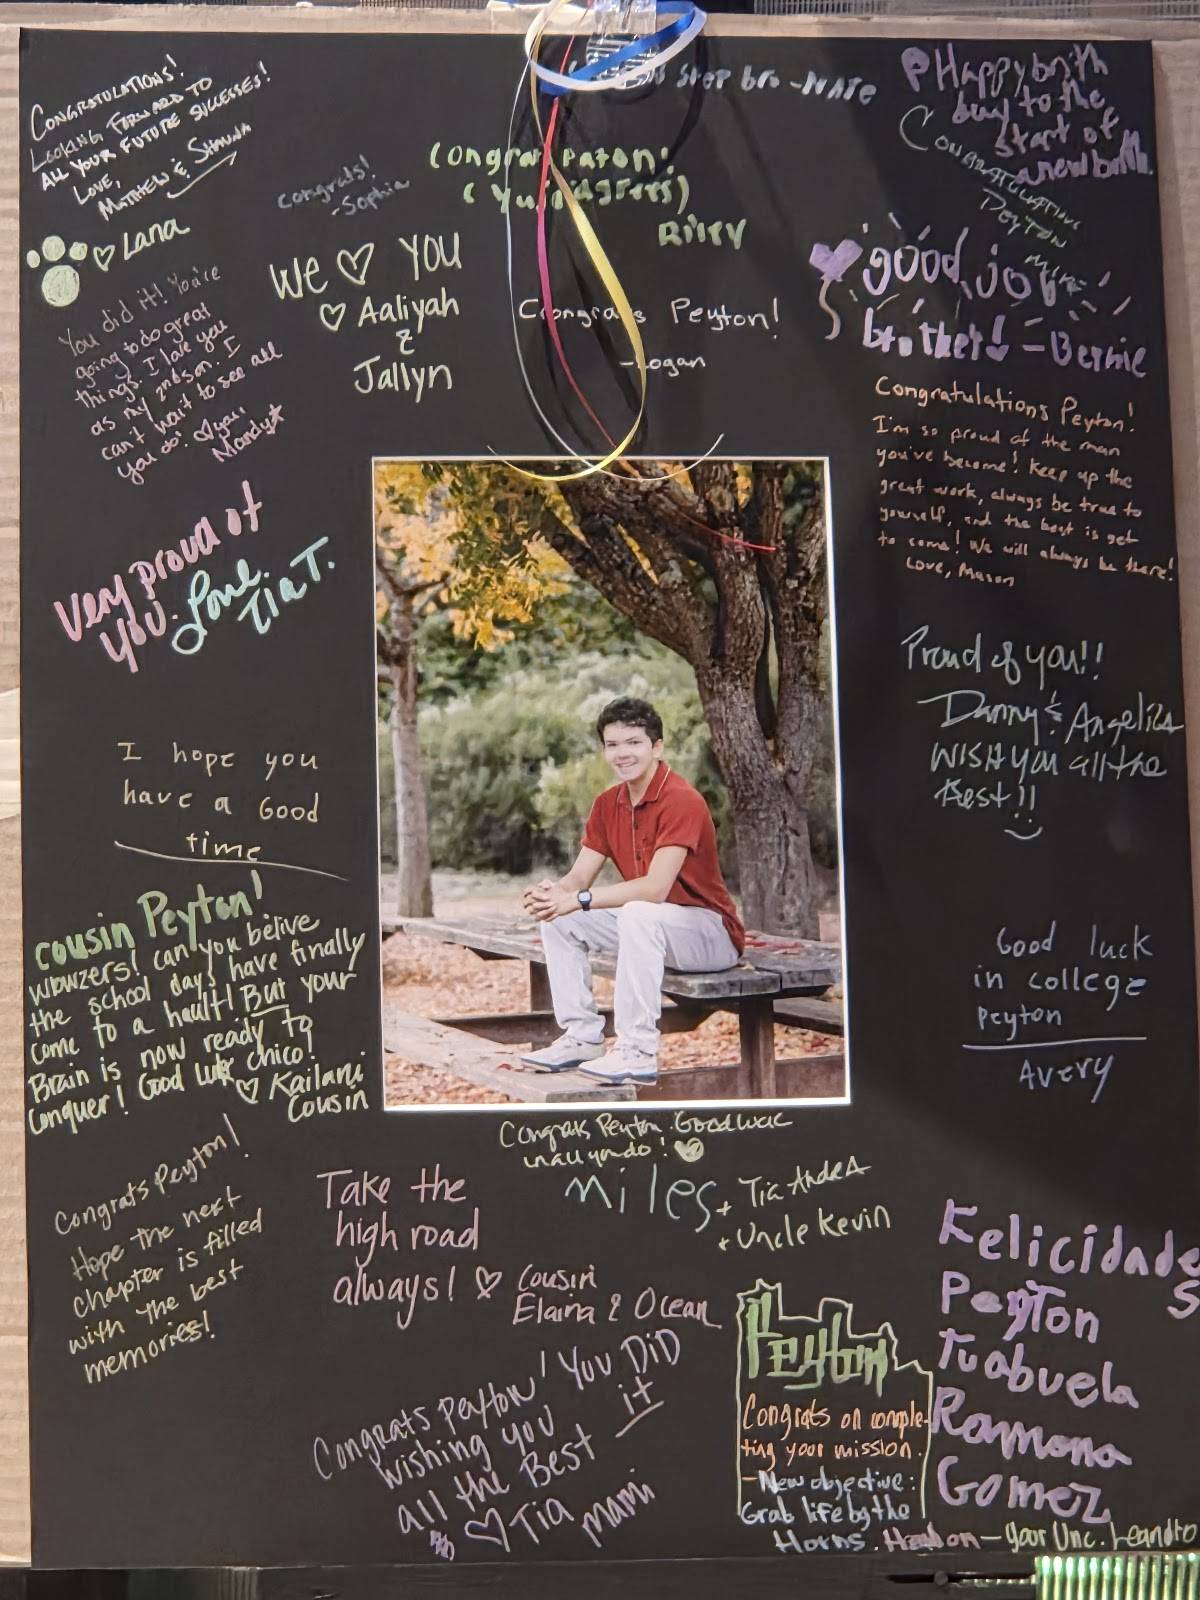 CONGRATULATIONS!
LOOKING FORWARD TO
ALL YOUR FUTURE SUCCESSES!
LOVE,
MATTHEW & SHAUNA
♡ Lana
You did it! You're
going to do great
things. I love you
as my 2nd son. I
can't wait to see all
you do! ♡ you,
Mandy★
Very proud of
you. Love,
Tia T.
I hope you
have a Good
time
cousin Peyton!
Wowzers! can you belive
the school days have finally
come to a hault! But your
Brain is now ready to
conquer! Good luck chico!
♡ Kailani
Cousin
Congrats Peyton!
Hope the next
chapter is filled
with the best
memories!
congrats!
-Sophia
We ♡ YOU
♡ Aaliyah
&
Jallyn
step bro -NATE
Riley
Congrats Peyton!
-Logan
Happy birth
day to the
start of
a new
CONGRATULATIONS
PEYTON
MIKE
good job
brother! - Bernie
Congratulations Peyton!
I'm so proud of the man
you've become! Keep up the
great work, always be true to
yourself, and the best is yet
to come! We will always be there!
Love, Mason
Proud of you!!
Danny & Angelica
WISH you all the
Best!!
Good luck
in college
Peyton
Avery
Congrats Peyton. Good luck
in all you do! ♡
Miles
+ Tia Andea
+ Uncle Kevin
Take the
high road
always! ♡ Cousin
Elaina & Ocean
Congrats Peyton! You DID
it
wishing you
all the Best
♡ Tia
mami
Peyton
Congrats on comple-
ting your mission.
-New objective:
Grab life by the
Horns. Head on - your Unc. Leandro
Felicidades
Peyton
Tu abuela
Ramona
Gomez